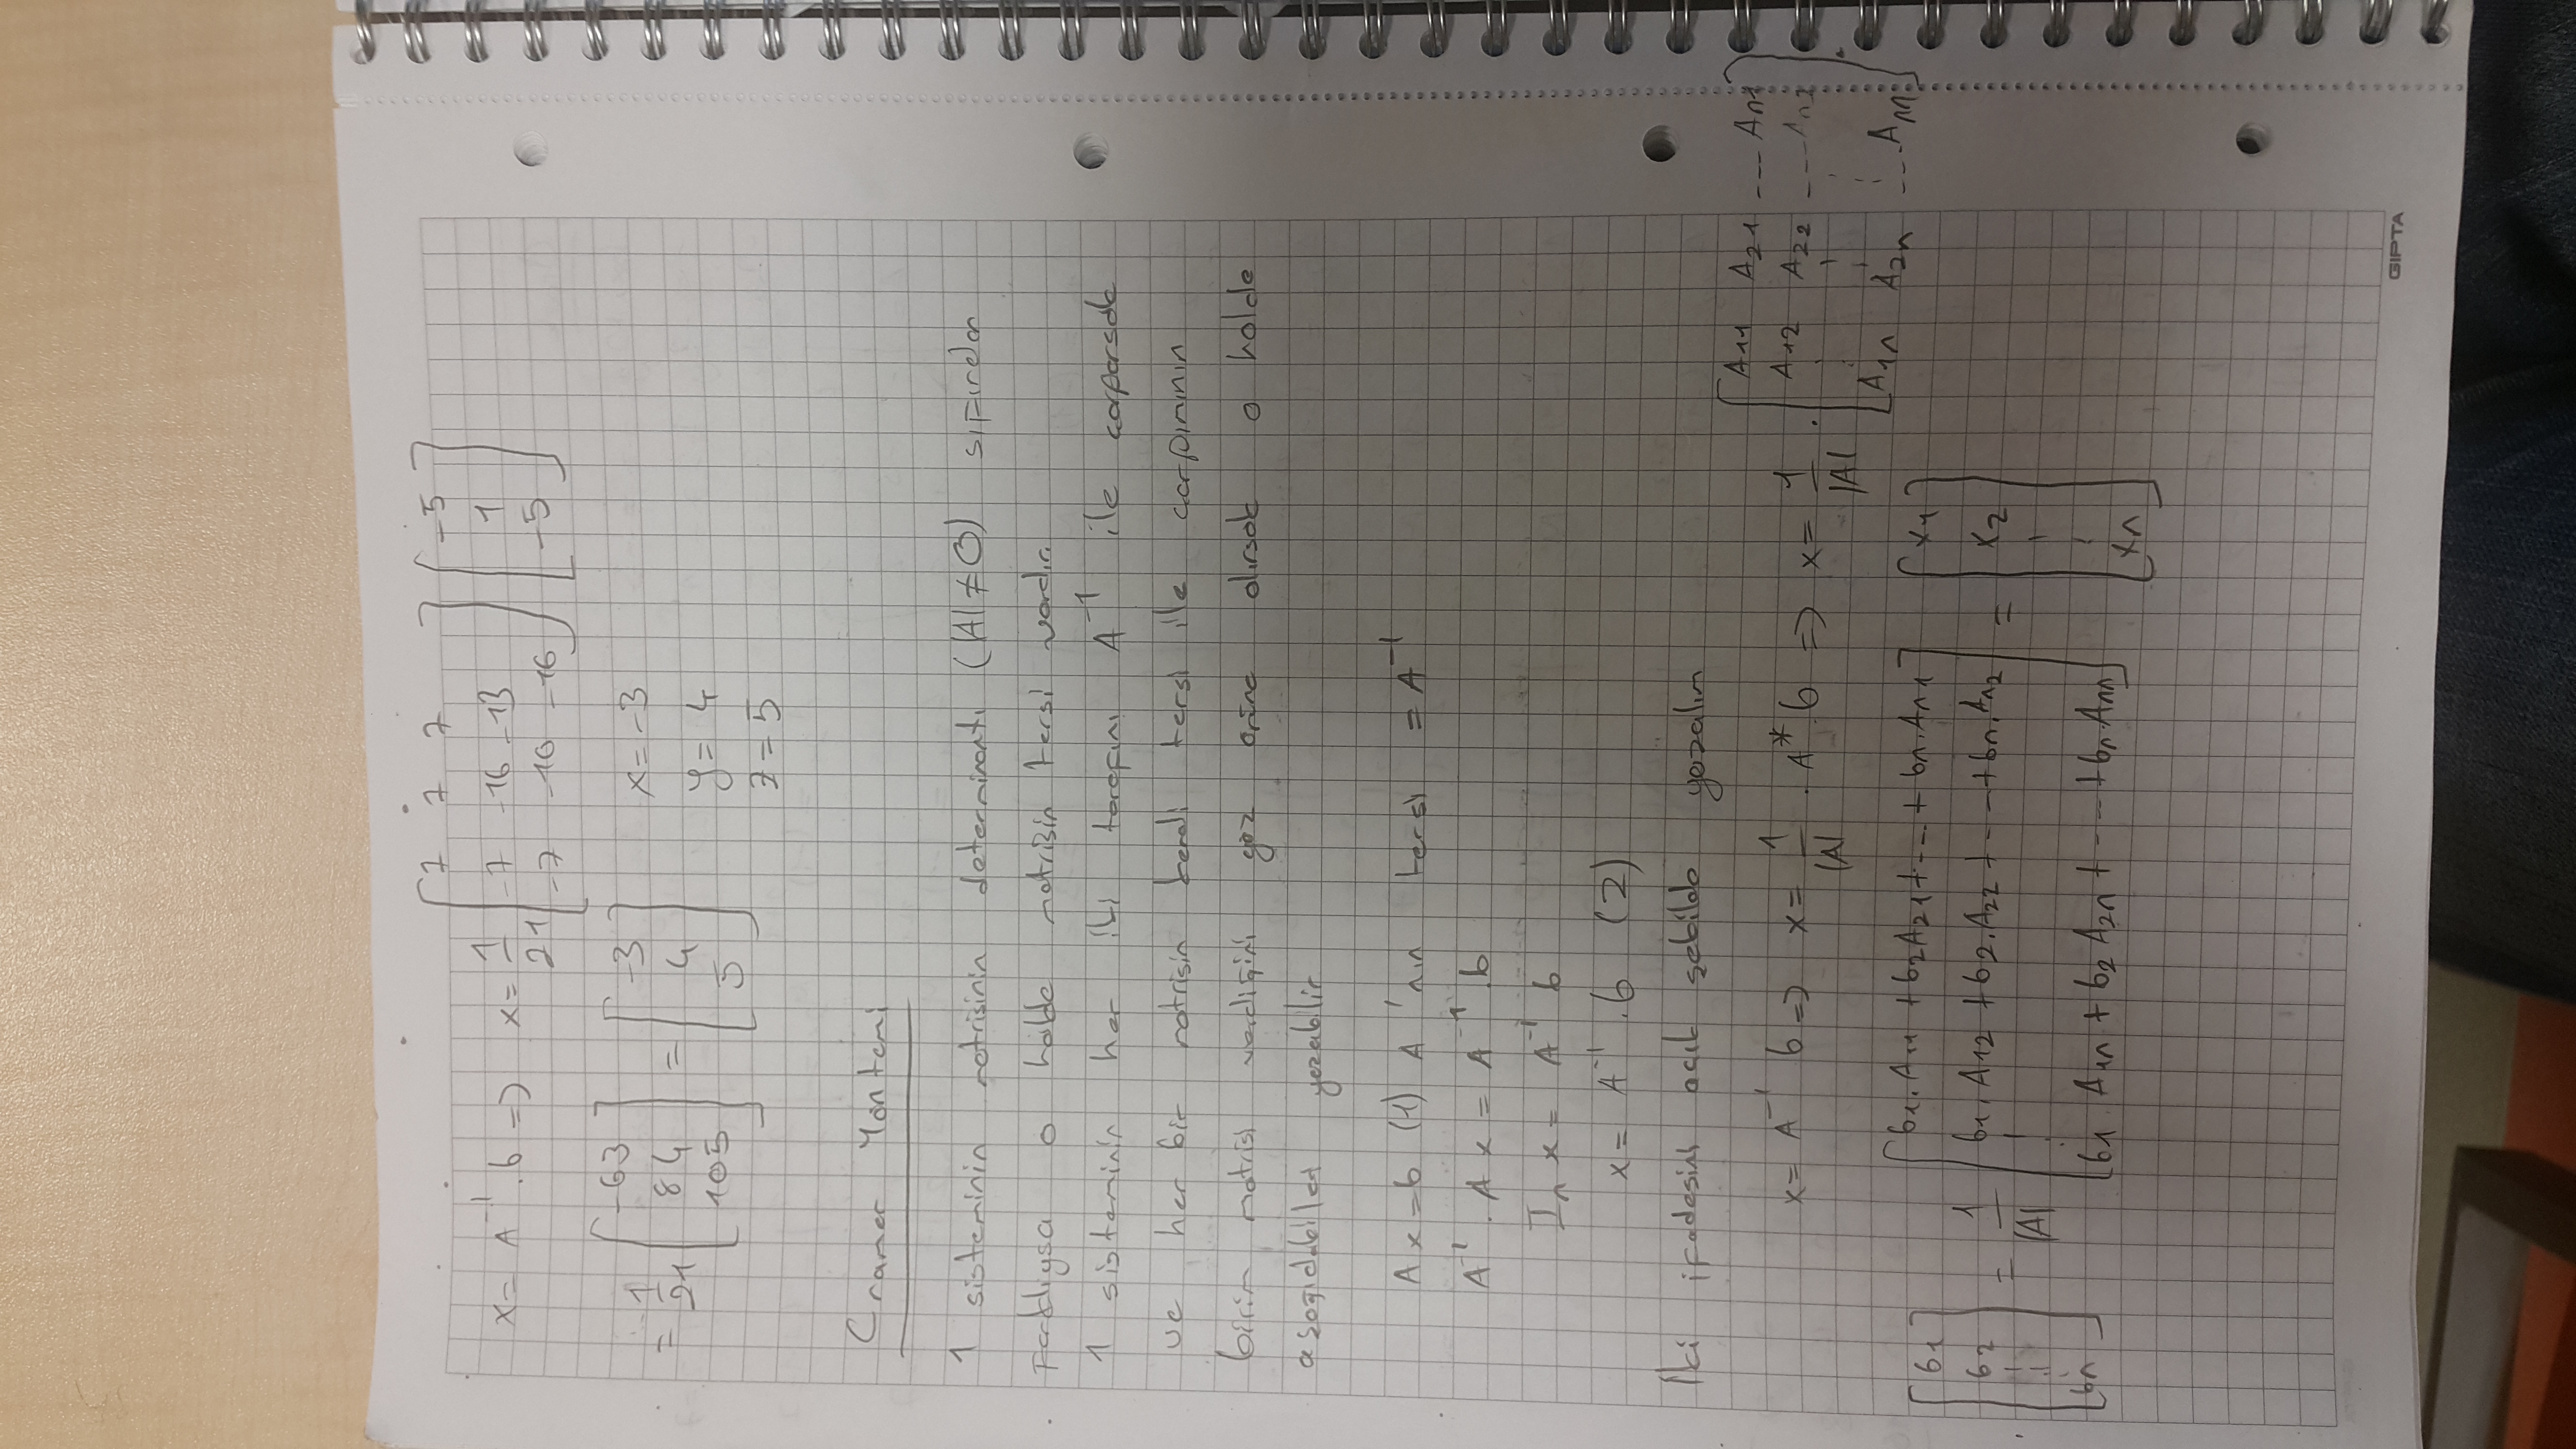 x = A⁻¹ . b => x = 1/21 [ 7 7 7 ; -7 -16 -13 ; -7 -16 -16 ] [ -5 ; 1 ; -5 ]
= 1/21 [ -63 ; 84 ; 105 ] = [ -3 ; 4 ; 5 ] x = -3 y = 4 z = 5
Cramer Yöntemi
1 sisteminin matrisinin determinantı (|A| ≠ 0) sıfırdan
farklıysa o halde matrisin tersi vardır
1 sisteminin her iki tarafını A⁻¹ ile çarparsak
ve her bir matrisin kendi tersi ile çarpımının
birim matrisi verdiğini göz önüne alırsak o halde
aşağıdakileri yazabilir
Ax = b (1) A'nın tersi = A⁻¹
A⁻¹ . A x = A⁻¹ . b
In x = A⁻¹ b
x = A⁻¹ . b (2)
İki ifadesini açık şekilde yazalım
x = A⁻¹ b => x = 1/|A| . A* b => x = 1/|A| . [ A11 A21 --- An1 ; A12 A22 --- An2 ; A1n A2n --- Ann ]
[ b1 ; b2 ; bn ] = 1/|A| [ b1.A11 + b2A21 + --- + bn.An1 ; b1.A12 + b2.A22 + --- + bn.An2 ; b1 A1n + b2 A2n + --- + bn Ann ] = [ x1 ; x2 ; xn ]
GIPTA